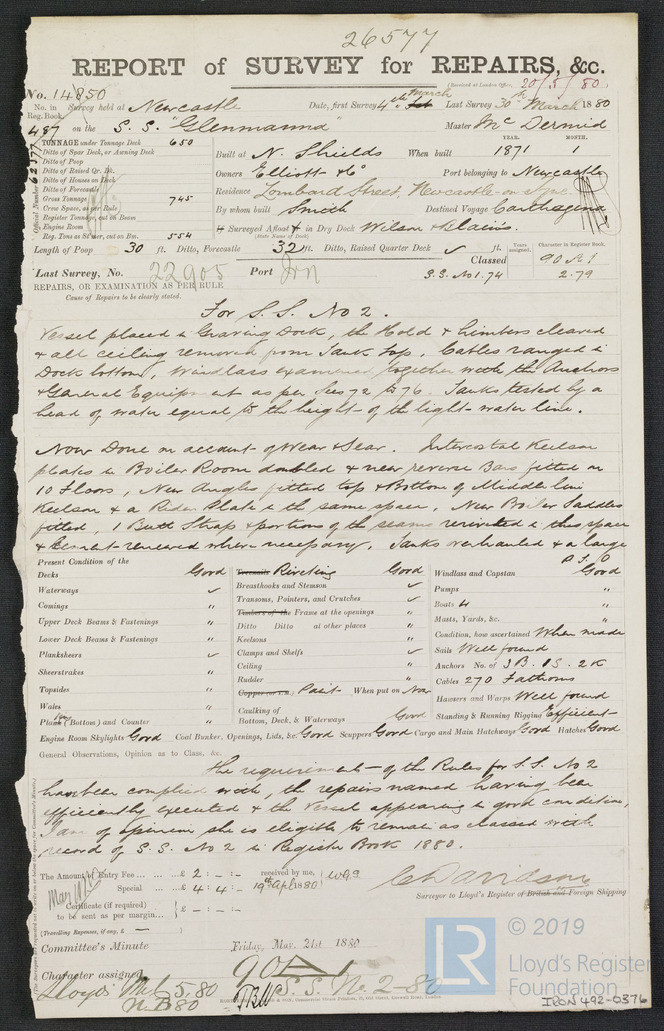 26577
REPORT of SURVEY for REPAIRS, &c.
No. 14850
(Received at London Office, 20/5/80.
No. in Reg. Book. Survey held at Newcastle Date, first Survey 4th March Last Survey 30th March 1880
487 on the S. S. "Glenmanna" Master Mc Dermid
TONNAGE under Tonnage Deck 650
Ditto of Spar Deck, or Awning Deck
Ditto of Poop
Ditto of Raised Qr. Dk.
Ditto of Houses on Deck
Ditto of Forecastle
Gross Tonnage 745
Crew Space, as per Rule
Register Tonnage, cut on Beam
Engine Room
Reg. Tons as Stmer, cut on Bm. 554
Official Number 62377
YEAR. MONTH.
Built at N. Shields When built 1871 1
Owners Elliott & Co Port belonging to Newcastle
Residence Lombard Street, Newcastle-on-Tyne
By whom built Smith Destined Voyage Carthagena
If Surveyed Afloat or in Dry Dock Wilson &
(State Name of Dock)
Length of Poop 30 ft. Ditto, Forecastle 32 ft. Ditto, Raised Quarter Deck ✓ ft.
Years assigned. Character in Register Book.
Classed 90 A1
Last Survey, No. 22905 Port S.S. No 1.74 2.79
REPAIRS, OR EXAMINATION AS PER RULE
Cause of Repairs to be clearly stated.
For S. S. No 2.
Vessel placed in Graving Dock, the Hold & Limbers cleared
& all ceiling removed from Tank top. Cables ranged in
Dock bottom, Windlass examined together with the Anchors
& General Equipment as per Secs 72 to 76. Tanks tested by a
head of water equal to the height of the light water line.
Now Done on account of Wear & Tear. Intercostal Keelson
plates in Boiler Room doubled & new reverse Bars fitted on
10 Floors, New Angles fitted top & Bottom of Middle line
Keelson & a Rider Plate in the same space. New Boiler Saddles
fitted, 1 Butt Strap & portions of the seams reriveted in this space
& Cement renewed where necessary. Tanks overhauled & a large
P. T. O
Present Condition of the
Decks Good
Waterways ✓
Comings "
Upper Deck Beams & Fastenings "
Lower Deck Beams & Fastenings "
Planksheers ✓
Sheerstrakes "
Topsides "
Wales "
Plank (Bottom) and Counter "
Treenails Riveting Good
Breasthooks and Stemson ✓
Transoms, Pointers, and Crutches ✓
Timbers of the Frame at the openings "
Ditto Ditto at other places "
Keelsons "
Clamps and Shelfs ✓
Ceiling "
Rudder "
Copper Paint When put on Now
Caulking of
Bottom, Deck, & Waterways Good
Windlass and Capstan Good
Pumps "
Boats 4 "
Masts, Yards, &c. "
Condition, how ascertained When made
Sails Well found
Anchors No. of 3B. 1S. 2K
Cables 270 Fathoms
Hawsers and Warps Well found
Standing & Running Rigging Efficient
Engine Room Skylights Good Coal Bunker, Openings, Lids, &c. Good Scuppers Good Cargo and Main Hatchways Good Hatches Good
General Observations, Opinion as to Class, &c.
The requirements of the Rules for S.S. No 2
have been complied with, the repairs named having been
efficiently executed & the Vessel appearing in good condition,
I am of opinion she is eligible to remain as classed with
record of S. S. No 2 in Register Book 1880.
The Amount of Entry Fee ... ... £ 2 : - : - received by me,
Special ... ... £ 4 : 4 : - 19th Apl 1880
Certificate (if required)
to be sent as per margin... £ - : - : -
(Travelling Expenses, if any, £ —)
C Davidson
Surveyor to Lloyd's Register of British and Foreign Shipping
Committee's Minute Friday, May. 21st 1880
Character assigned 90A1
S. S. No. 2-80
Lloyds Mc 5.80
N.B 80
© 2019
LR
Lloyd's Register
Foundation
IRON 492-0376